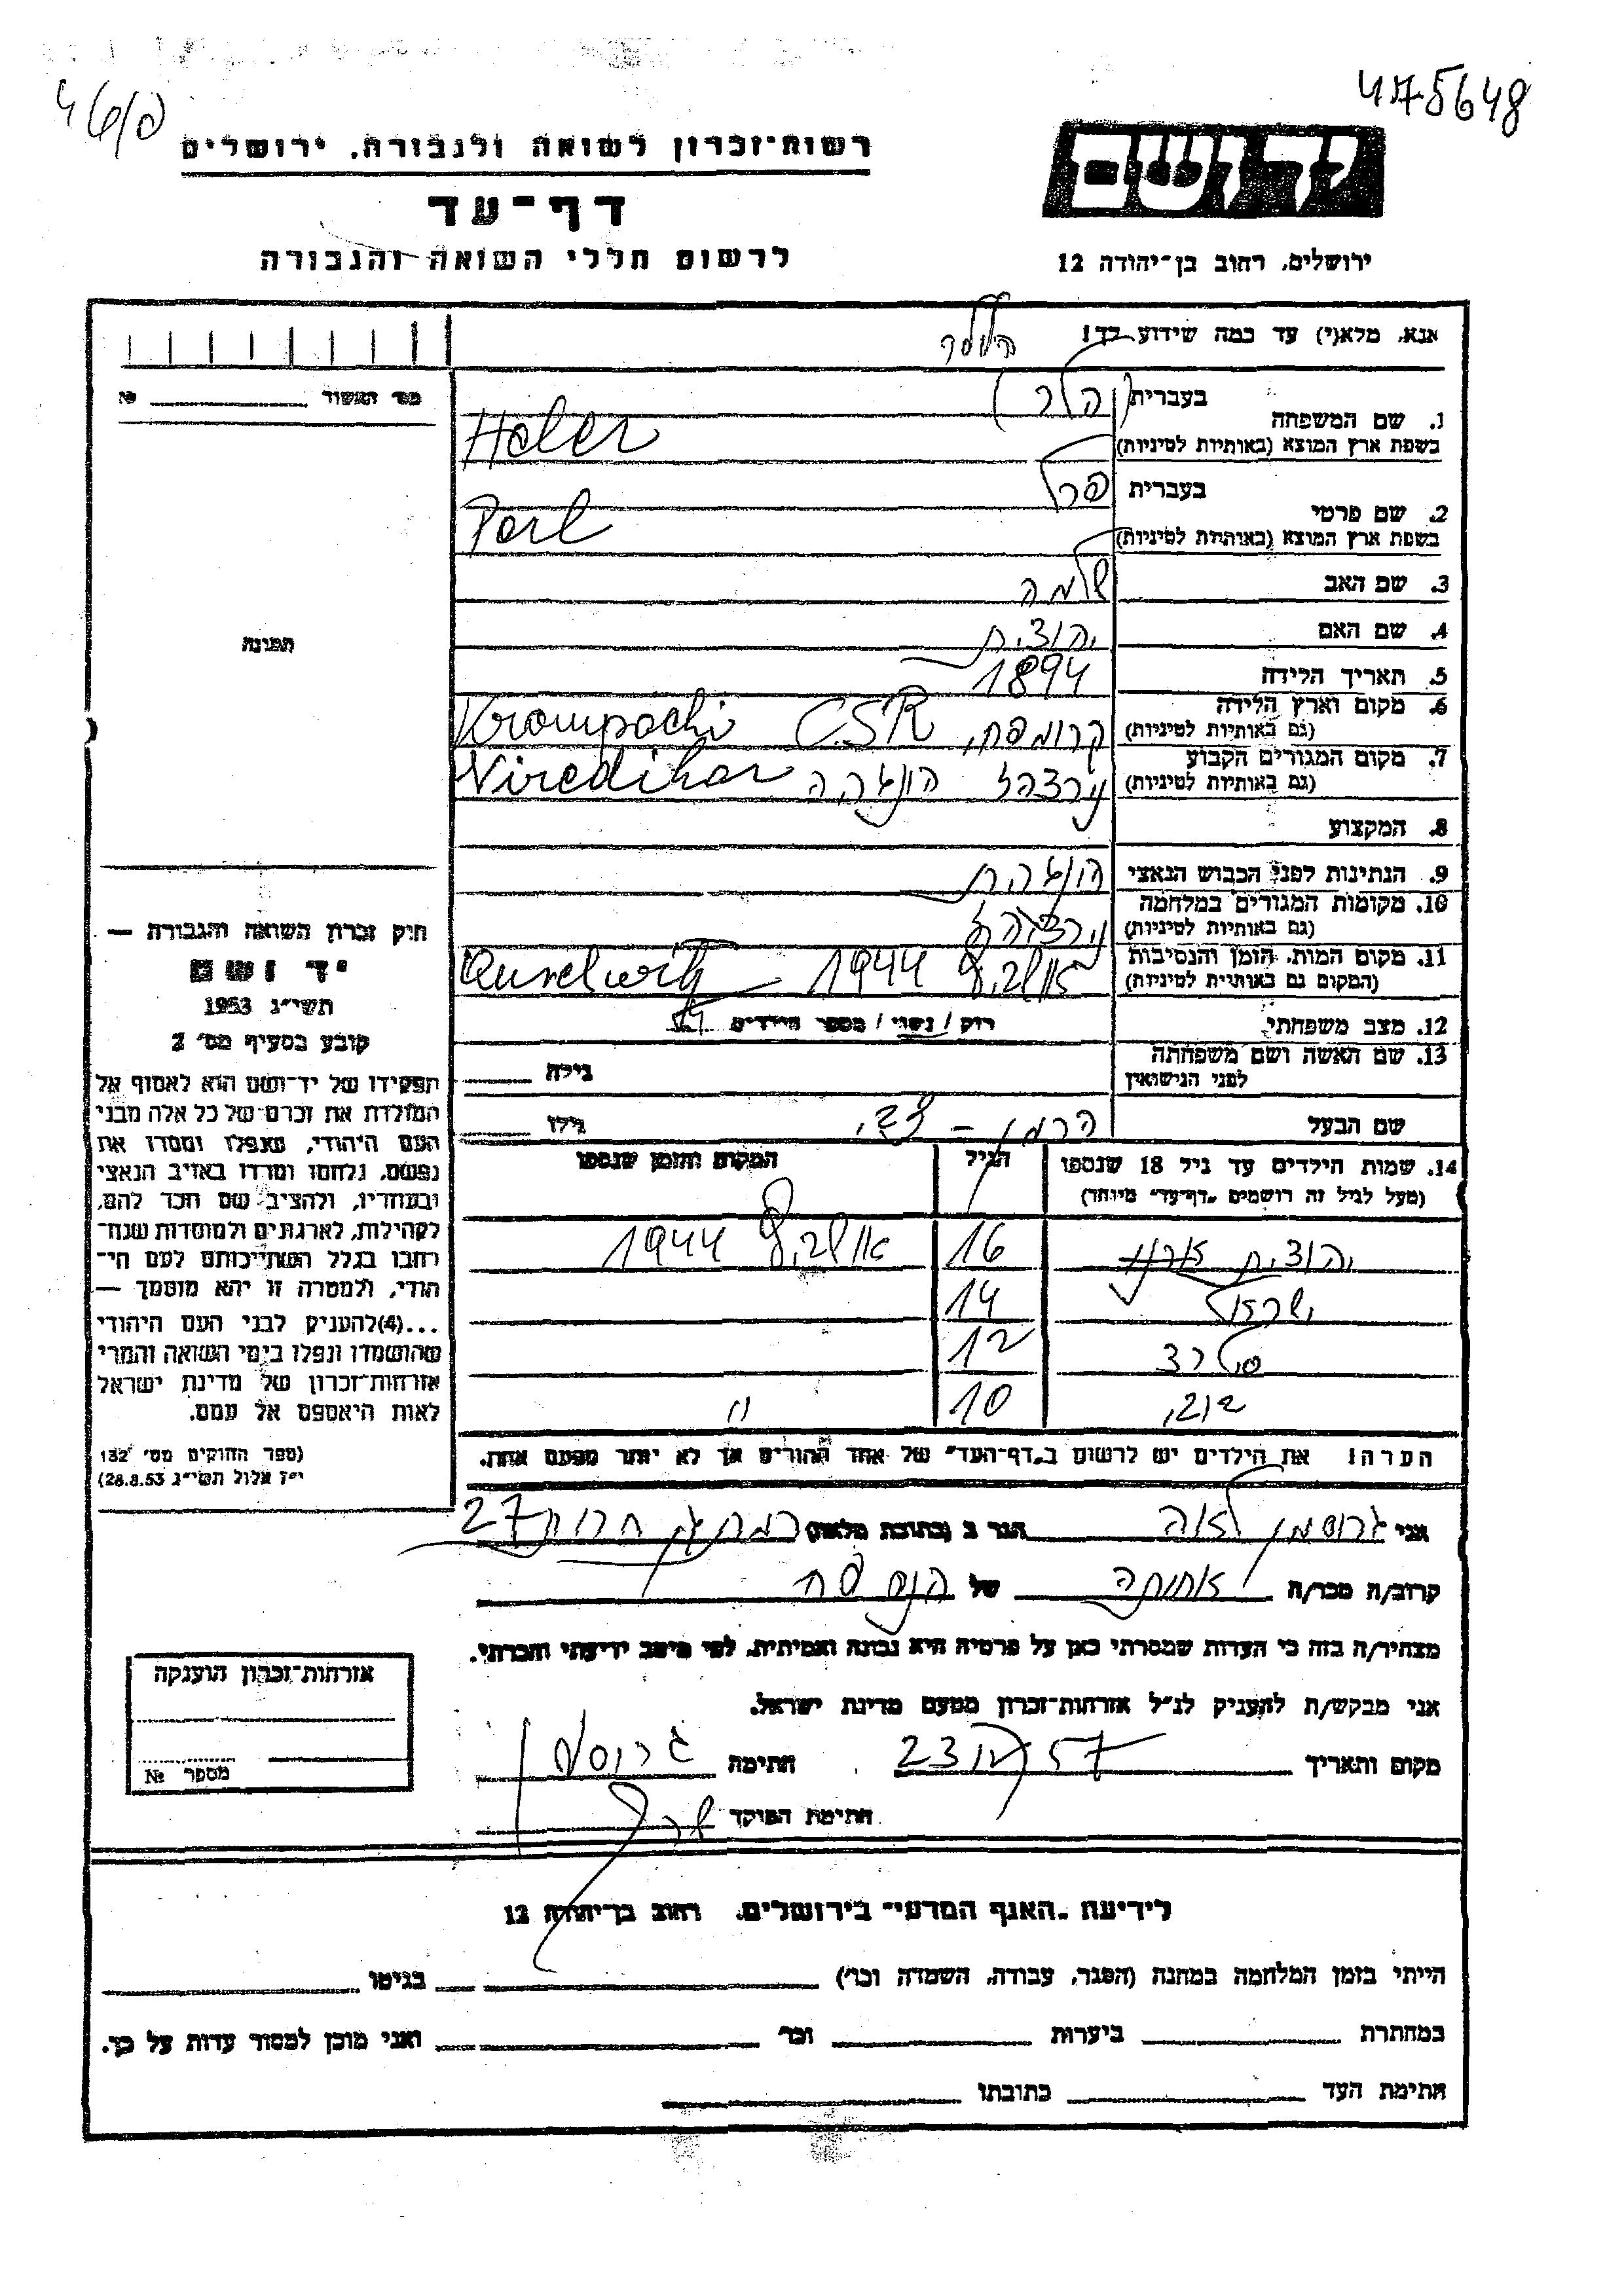 475648
רשות־זכרון לשואה ולגבורה, ירושלים
דף־עד
לרשום חללי השואה והגבורה
יד ושם
ירושלים, רחוב בן־יהודה 12
אנא, מלא(י) עד כמה שידוע לך!
מס׳ האשור № 
1. שם המשפחה בעברית (הלר)
בשפת ארץ המוצא (באותיות לטיניות) Heler
2. שם פרטי בעברית פרל
בשפת ארץ המוצא (באותיות לטיניות) Perl
3. שם האב שלמה
4. שם האם יהודית
5. תאריך הלידה 1894
6. מקום וארץ הלידה
(גם באותיות לטיניות) קרומפח, Krompachi CSR
7. מקום המגורים הקבוע
(גם באותיות לטיניות) הונגריה
8. המקצוע
9. הנתינות לפני הכבוש הנאצי הונגרית
10. מקומות המגורים במלחמה
(גם באותיות לטיניות)
11. מקום המות, הזמן והנסיבות
(המקום גם באותיות לטיניות) אושביץ 1944
12. מצב משפחתי רווק / נשוי / מספר הילדים
13. שם האשה ושם משפחתה
לפני הנישואין גילה
שם הבעל הרמן גילו
14. שמות הילדים עד גיל 18 שנספו הגיל המקום והזמן שנספו
(מעל לגיל זה רושמים "דף־עד" מיוחד)
יהודית 16 אושביץ 1944
ישראל 14
12
10 "
הערה! את הילדים יש לרשום ב"דף־העד" של אחד ההורים אך לא יותר מפעם אחת.
תמונה
חוק זכרון השואה והגבורה —
יד ושם
תשי״ג 1953
קובע בסעיף מס׳ 2
תפקידו של יד־ושם הוא לאסוף אל
המולדת את זכרם של כל אלה מבני
העם היהודי, שנפלו ומסרו את
נפשם, נלחמו ומרדו באויב הנאצי
ובעוזריו, ולהציב שם וזכר להם,
לקהילות, לארגונים ולמוסדות שנח־
רבו בגלל השתייכותם לעם הי־
הודי, ולמטרה זו יהא מוסמך —
...(4)להעניק לבני העם היהודי
שהושמדו ונפלו בימי השואה והמרי
אזרחות־זכרון של מדינת ישראל
לאות היאספם אל עמם.
(ספר החוקים מס׳ 132
י״ז אלול תשי״ג 28.8.53)
אני גרוסמן לאה הגר ב (כתובת מלאה) רמת גן חרות 27
קרוב/ה מכר/ה אחותה של הנספה
מצהיר/ה בזה כי העדות שמסרתי כאן על פרטיה היא נכונה ואמיתית, לפי מיטב ידיעתי והכרתי.
אני מבקש/ת להעניק לנ״ל אזרחות־זכרון מטעם מדינת ישראל.
מקום ותאריך 57 23 חתימה
חתימת הפוקד
אזרחות־זכרון הוענקה
מספר №
לידיעת "האגף המדעי" בירושלים, רחוב בן־יהודה 12
הייתי בזמן המלחמה במחנה (הסגר, עבודה, השמדה וכו׳) בגיטו
במחתרת ביערות וכו׳ ואני מוכן למסור עדות על כך.
חתימת העד כתובתו